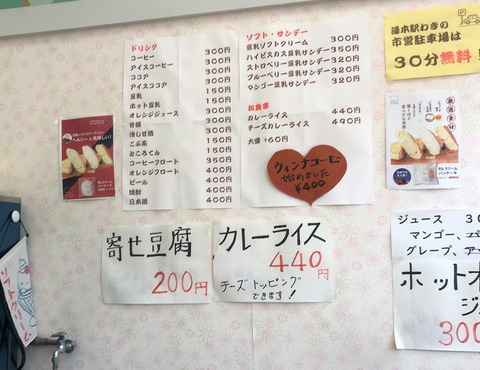 ドリンク
コーヒー 300円
アイスコーヒー 300円
ココア 300円
アイスココア 300円
豆乳 150円
ホット豆乳 150円
オレンジジュース 300円
甘酒 300円
冷し甘酒 300円
こぶ茶 150円
ところてん 150円
コーヒーフロート 350円
オレンジフロート 350円
ビール 400円
焼酎 400円
日本酒 400円
ソフト・サンデー
豆乳ソフトクリーム 300円
ハイビスカス豆乳サンデー 350円
ストロベリー豆乳サンデー 320円
ブルーベリー豆乳サンデー 320円
マンゴー豆乳サンデー 320円
お食事
カレーライス 440円
チーズカレーライス 490円
大盛 +60円
ウィンナコーヒー
始めました
¥400
湯本駅わきの
市営駐車場は
30分無料!
寄せ豆腐
200円
カレーライス
440円
チーズトッピング
できます!
ジュース 30
マンゴー、
グレープ、
ホットオ
ジュ
300
ソフトクリーム